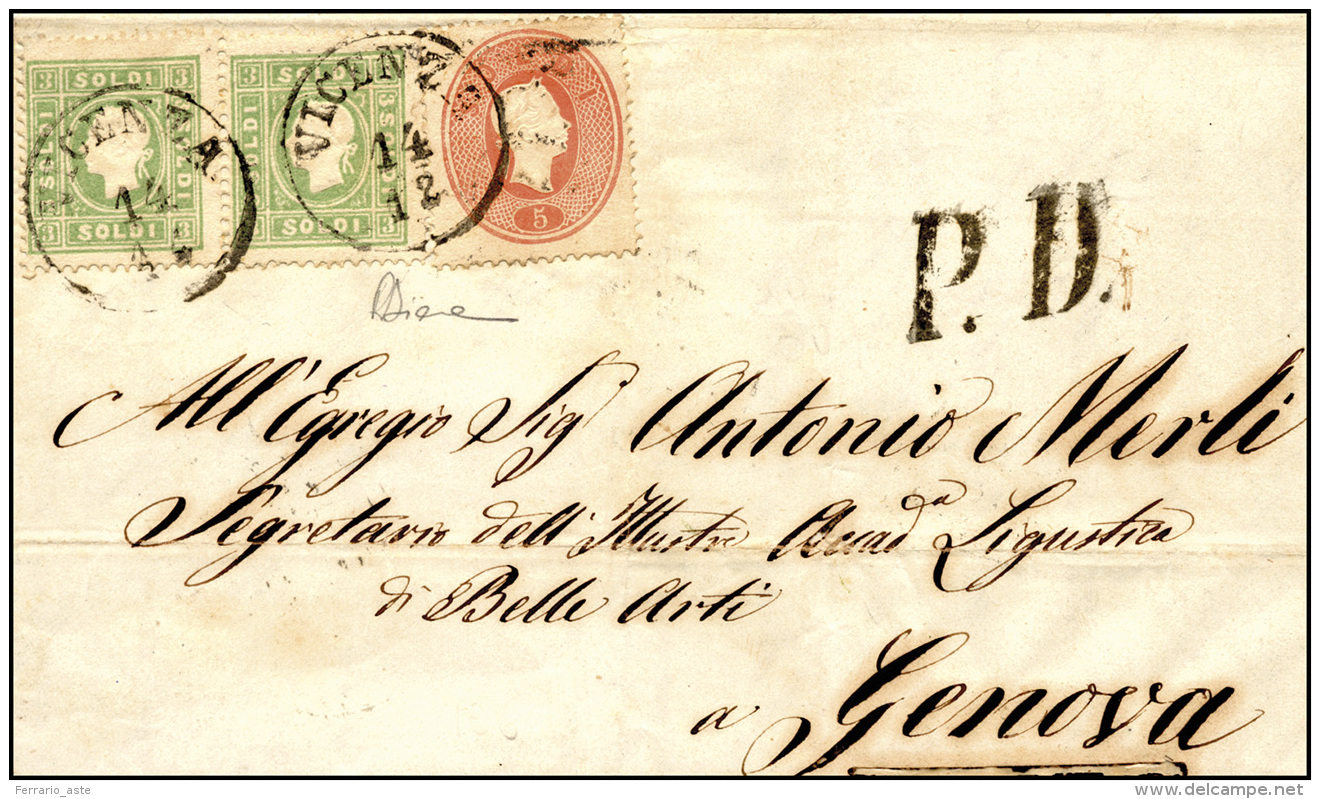 3 SOLDI 3 3 SOLDI 3
SOLDI SOLDI SOLDI
3 SOLDI 3 SOLDI 3
5
VICENZA
14
VICENZA
14
12
P.D.
Diena
All'Egregio Sig Antonio Merli
Segretario dell'Illustre Accad.a Ligustica
di Belle Arti
a Genova
Ferrario_aste
www.delcampe.net